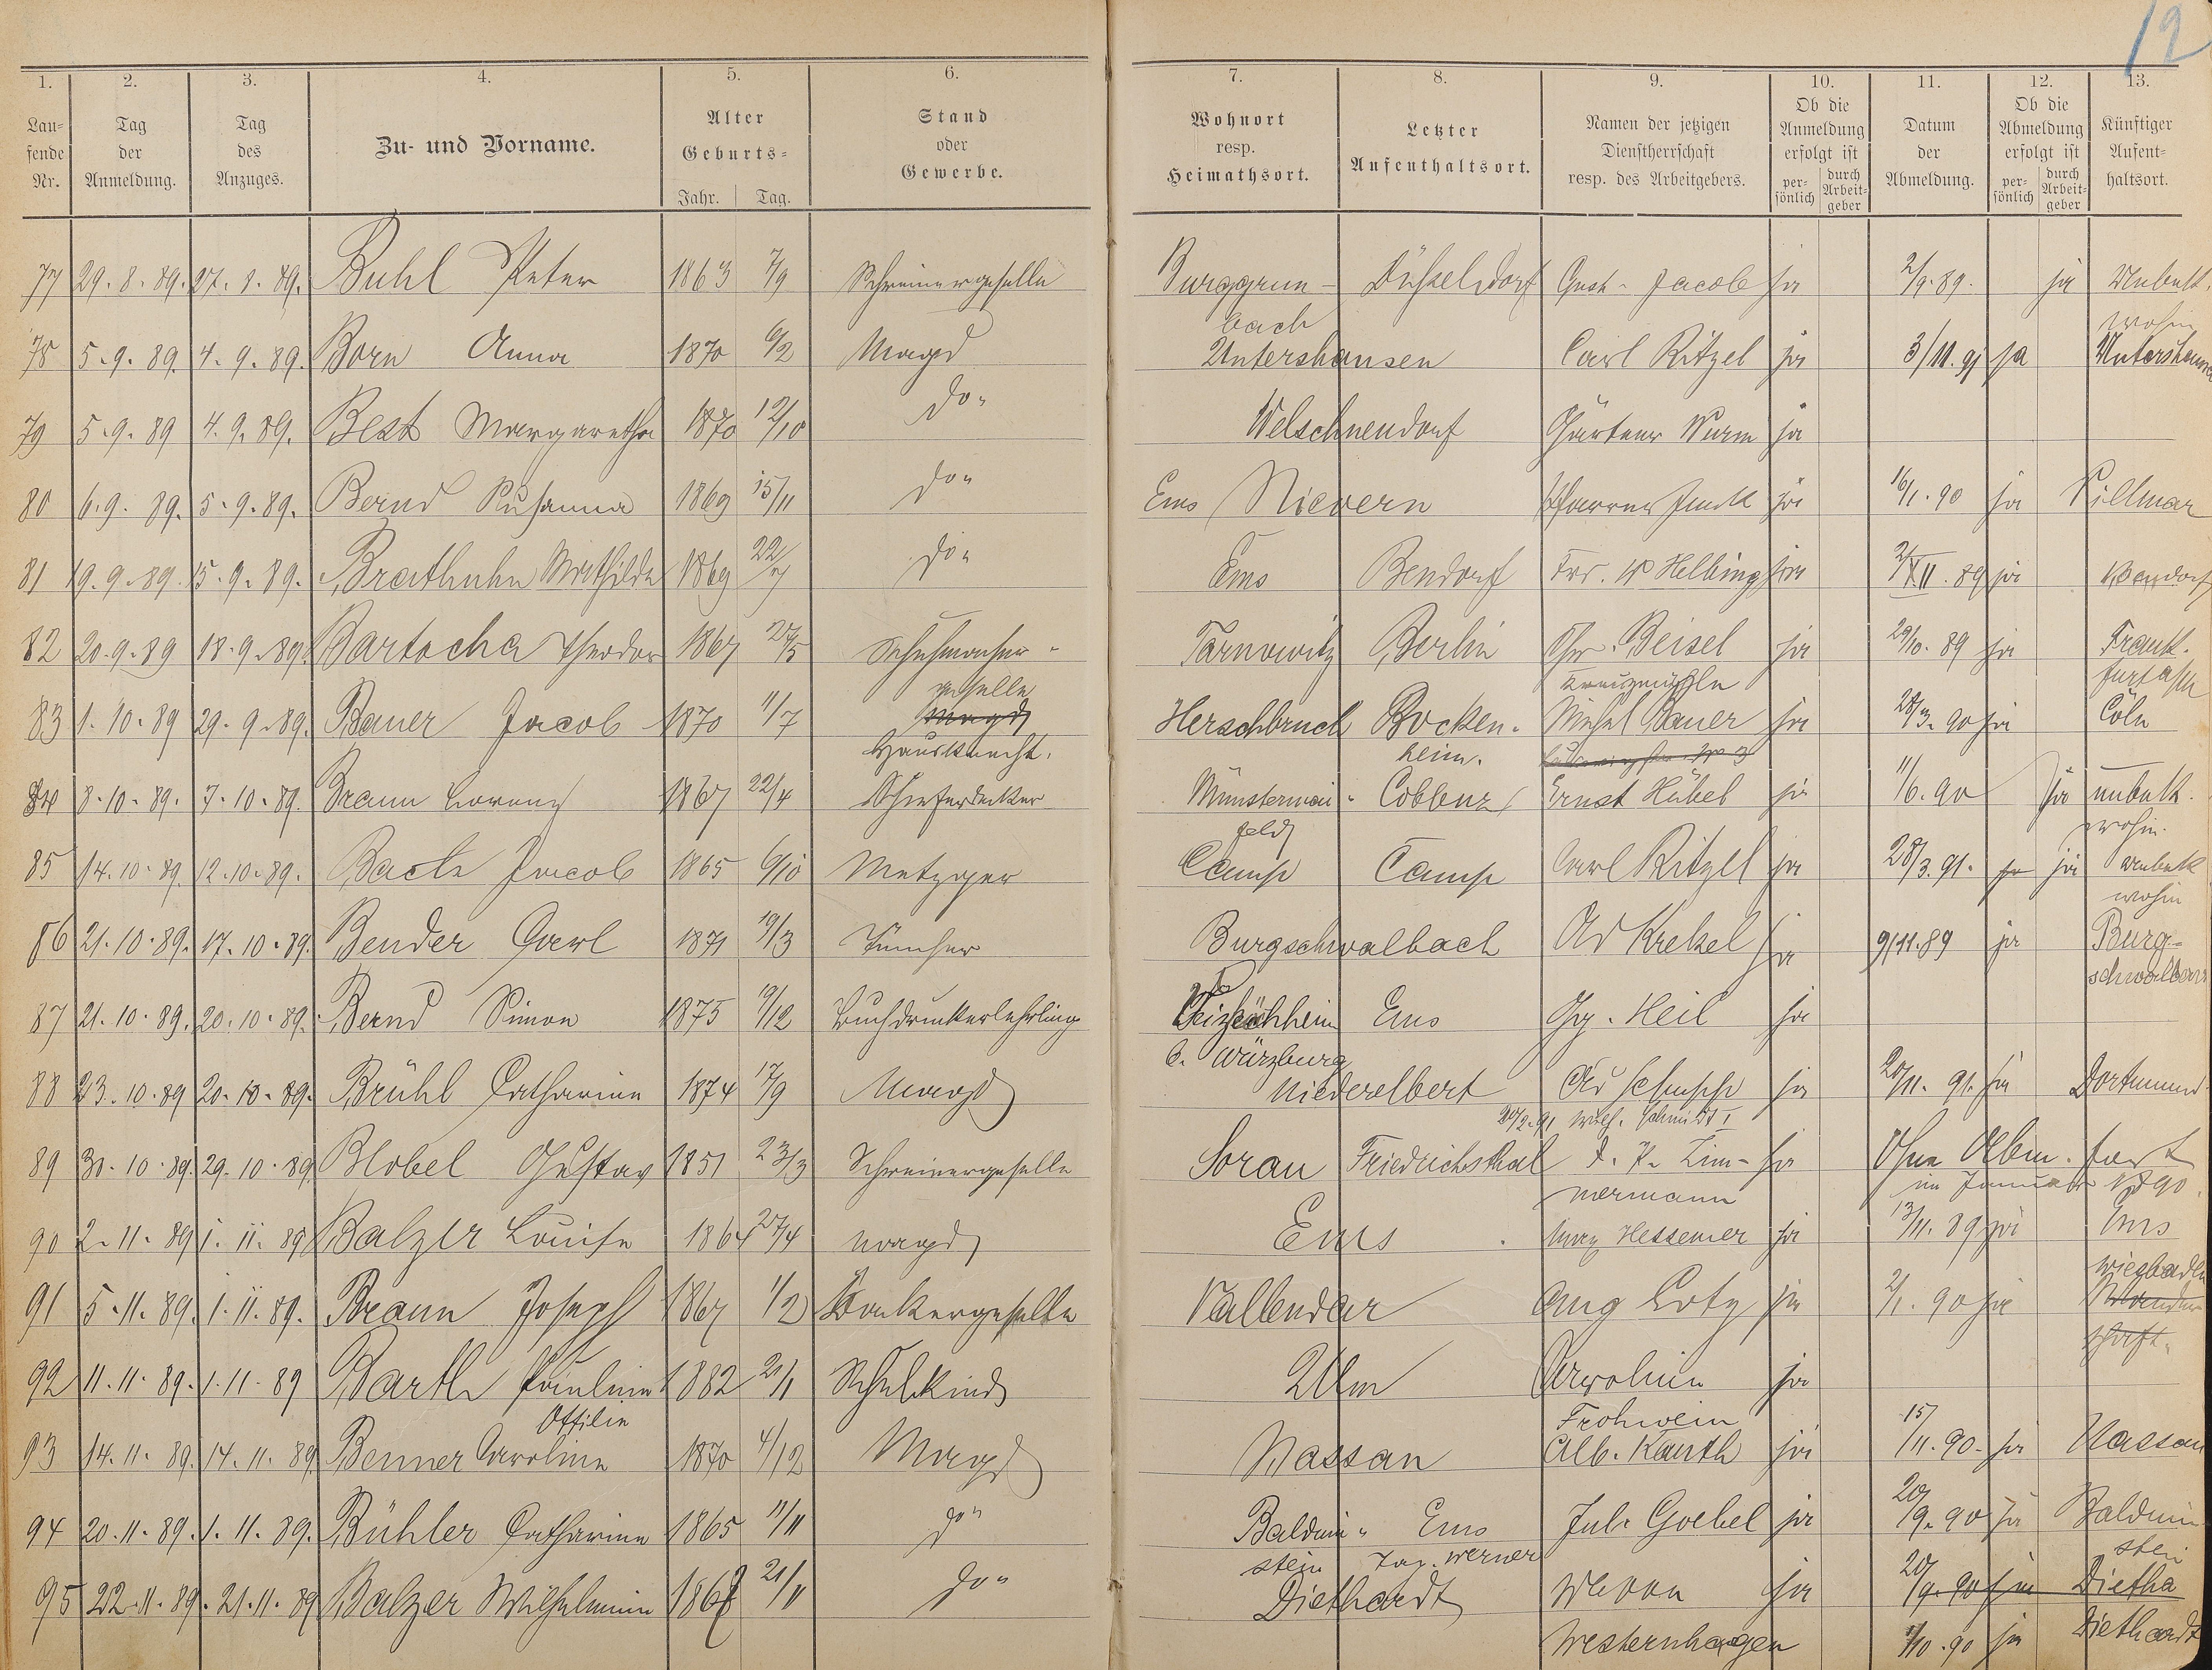 12
1. 2. 3. 4. 5. 6. 7. 8. 9. 10. 11. 12. 13.
Lau-
fende
Nr.
Tag
der
Anmeldung.
Tag
des
Anzuges.
Zu- und Vorname.
Alter
Geburts-
Jahr. Tag.
Stand
oder
Gewerbe.
Wohnort
resp.
Heimathsort.
Letzter
Aufenthaltsort.
Namen der jetzigen
Dienstherrschaft
resp. des Arbeitgebers.
Ob die
Anmeldung
erfolgt ist
per-
sönlich
durch
Arbeit-
geber
Datum
der
Abmeldung.
Ob die
Abmeldung
erfolgt ist
per-
sönlich
durch
Arbeit-
geber
Künftiger
Aufent-
haltsort.
77 29.8.89. 27.8.89. Buhl Peter 1863 7/9 Schreinergeselle Burggrum- Düsseldorf Gust. Jacob ja 2/9.89. ja Unbek.
bach wohin
78 5.9.89. 4.9.89. Born Anna 1870 6/2 Magd Untershausen Carl Ritzel ja 3/11.91 ja Untershausen
79 5.9.89 4.9.89. Best Margaretha 1870 12/10 do" Welschneudorf Gärtner Wurm ja
80 6.9.89. 5.9.89. Bernd Susanna 1869 15/11 do" Ems Nievern Pfarrer ja 16/1.90 ja Villmar
81 19.9.89. 15.9.89. Brathuhn Mathilde 1869 22/7 do" Ems Bendorf Frd. W Helbing ja 2/XII.89 ja Bendorf
82 20.9.89 18.9.89. Bartocha Theodor 1867 27/5 Schuhmacher- Tarnowitz Berlin Chr. Beisel ja 29/10.89 ja Frank-
geselle Kreuzmühle furt a/M
83 1.10.89 29.9.89. Bauer Jacob 1870 11/7 Magd Herschbruch Bocken- Michel Bauer ja 28/3.90 ja Cöln
Hausknecht. heim.
84 8.10.89. 7.10.89. Braun Lorenz 1867 22/4 Schieferdecker Münstermai- Coblenz Ernst Hübel ja 11/6.90 ja unbek.
feld wohin.
85 14.10.89. 12.10.89. Bach Jacob 1865 6/10 Metzger Camp Camp Carl Ritzel ja 28/3.91. ja ja unbek
wohin
86 21.10.89. 17.10.89. Bender Carl 1871 19/3 Tüncher Burgschwalbach Ad Krekel ja 9/11.89 ja Burg-
schwalbach
87 21.10.89. 20.10.89. Bernd Simon 1875 19/12 Buchdruckerlehrling Veitshöchheim Ems Gg. Heil ja
b. Würzburg
88 23.10.89 20.10.89. Brühl Catharine 1874 17/9 Magd Niederelbert Ad Schupp ja 20/11.91. ja Dortmund
20/2.91 Wilh. Schmidt I
89 31.10.89. 29.10.89 Blobel Gustav 1851 23/3 Schreinergeselle Sorau Friedrichsthal F. K. Zim- ja Ohne Abm. fort
mermann im Januar 1890.
90 2.11.89 1.11.89 Balzer Louise 1864 27/4 Magd Ems Hessemer ja 13/11.89 ja Ems
91 5.11.89. 1.11.89. Braun Joseph 1867 1/2 Bäckergeselle Vallendar Aug Lotz ja 2/1.90 ja Wiesbaden
Wander
schaft.
92 11.11.89. 1.11.89 Barth Pauline 1882 21/1 Schulkind Ulm Caroline ja
Ottilie Frohwein
93 14.11.89. 14.11.89 Benner Caroline 1870 4/12 Magd Nassau Alb. Kauth ja 15/11.90. ja Nassau
94 20.11.89. 1.11.89. Bühler Catharine 1865 11/11 do" Balduin- Ems Jul. Goebel ja 20/9.90 ja Balduin
stein Jag. Werner stein
95 22.11.89. 21.11.89 Balzer Wilhelmine 1867 21/11 do" Diethardt Wwe von ja 20/9.90 ja Dietha
Westernhagen 1/10.90 ja Diethardt